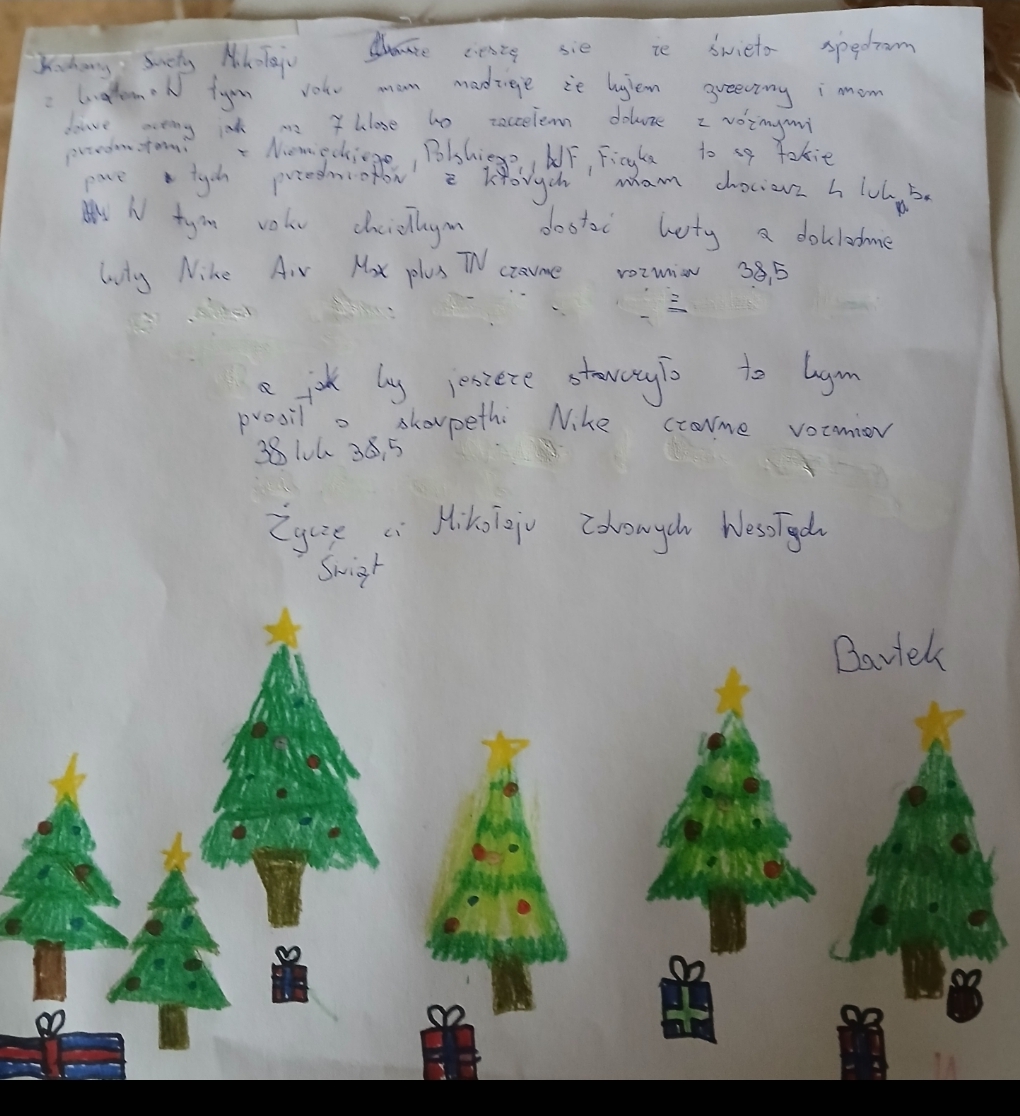 Kochany Święty Mikołaju cieszę sie że święta spędzam
z bratam. W tym roku mam nadzieje że byłem grzeczny i mam
dobre oceny jak na 7 klase bo zacząłem dobrze z różnymi
przedmiotami z Niemieckiego, Polskiego, WF, Fizyka to są takie
pare tych przedmiotów z których mam chociarz 4 lub 5.
W tym roku chciałbym dostać buty a dokladnie
buty Nike Air Max plus TN czarne rozmiar 38,5
a jak by jeszcze starczyło to bym
prosil o skarpetki Nike czarne rozmiar
38 lub 38,5
Życzę ci Mikołaju Zdrowych Wesołych
Świąt
Bartek